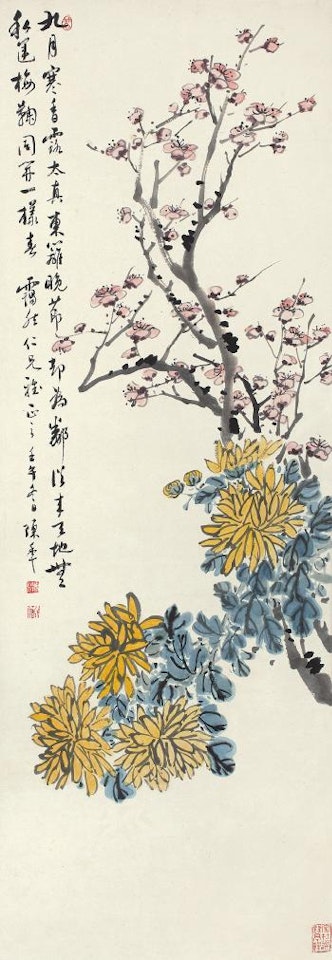 九月寒香露太真東籬晚節却為鄰從来天地無
私運梅鞠同開一樣春 靄然仁兄雅正之壬午冬日陳年